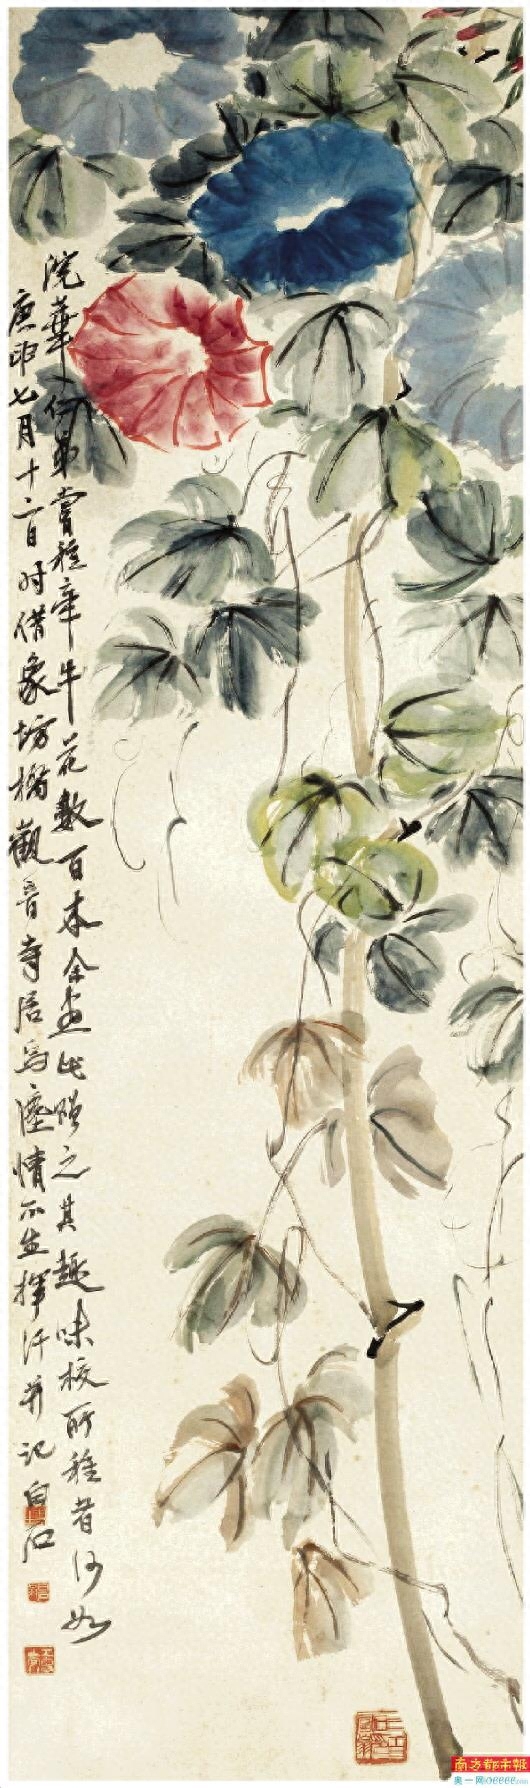 浣華仁弟嘗種牽牛花數百本余畫此贈之其趣味校所種者何如
庚申七月十二日时借象坊橋觀音寺居焉塵情不生揮汗并记白石
南方都市報
奥一网